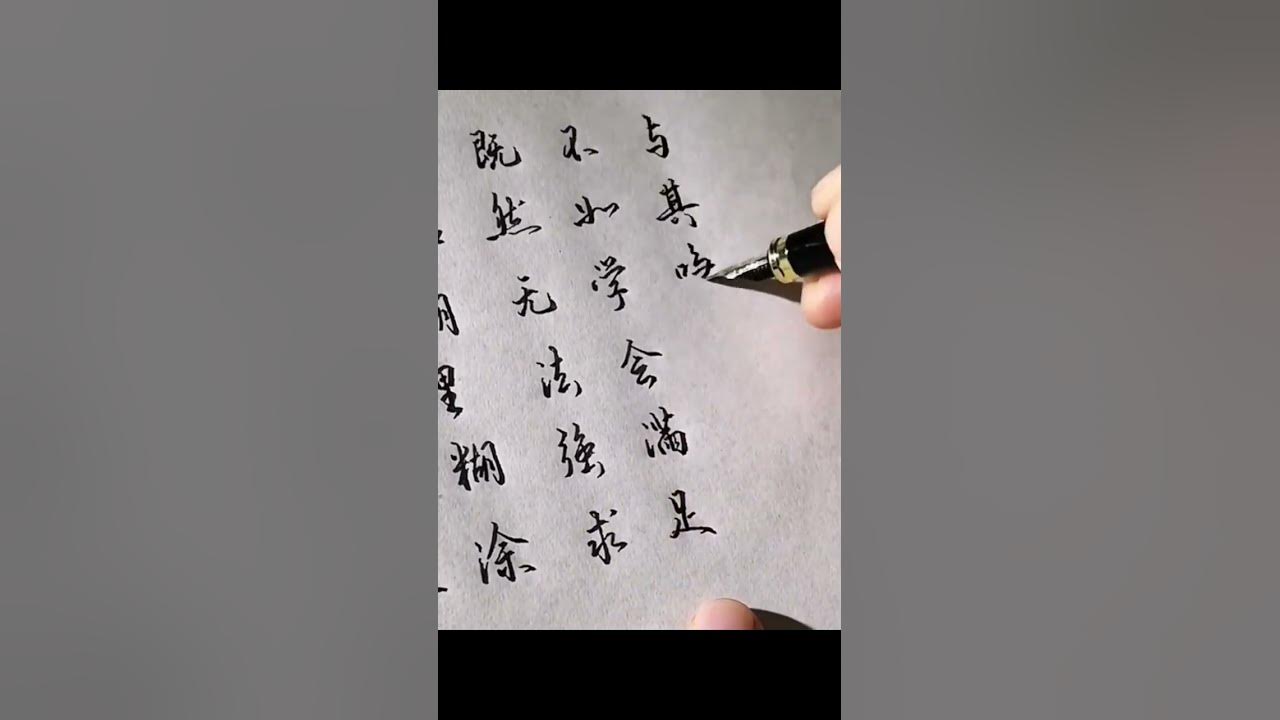 与其
不如学会满足
既然无法强求
里糊涂